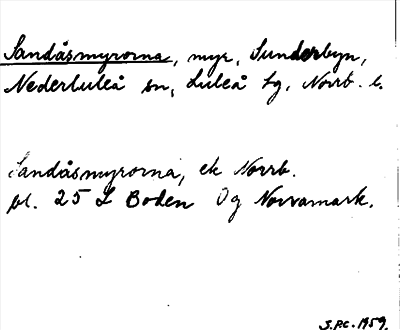 Sandåsmyrorna, myr, Sunderbyn,
Nederluleå sn, Luleå tg, Norrb. l.
Sandåsmyrorna, ek Norrb.
bl. 25 L Boden Og Norvamark.
J.P.C. 1959.